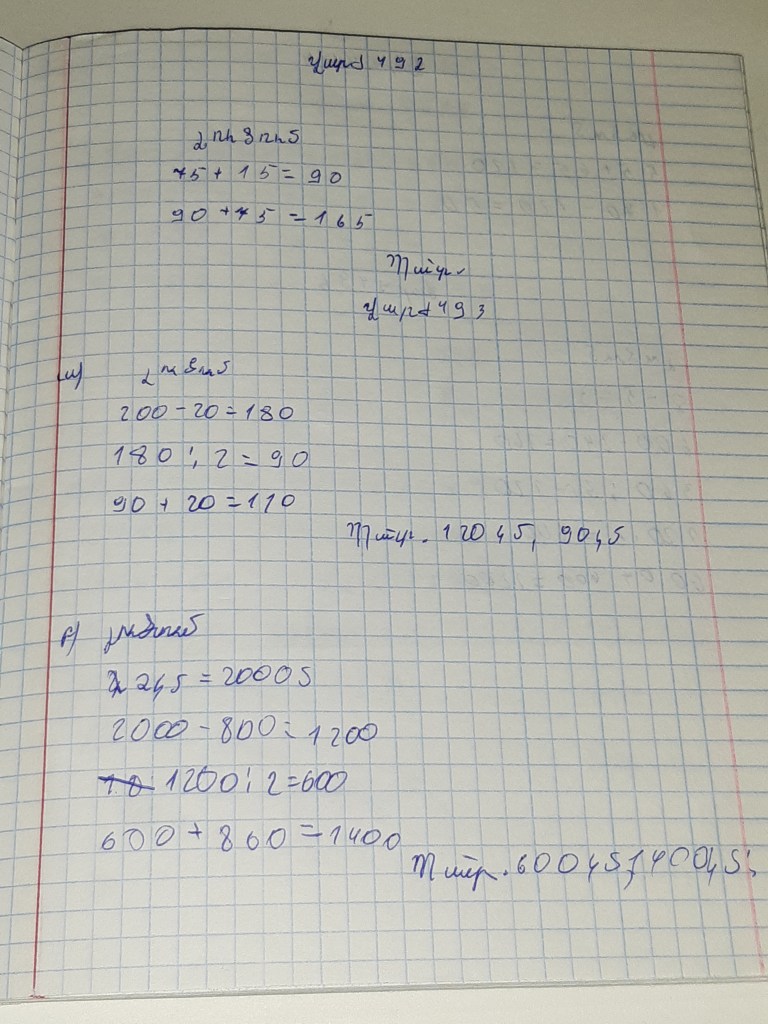 Վարժ 492
Լուծում
75 + 15 = 90
90 + 75 = 165
Պատ.
Վարժ 493
ա) Լուծում
200 - 20 = 180
180 : 2 = 90
90 + 20 = 110
Պատ. 120 կգ, 90 կգ
բ) Լուծում
2 կգ = 2000 գ
2000 - 800 = 1200
1200 : 2 = 600
600 + 800 = 1400
Պատ. 600 կգ, 1400 կգ: